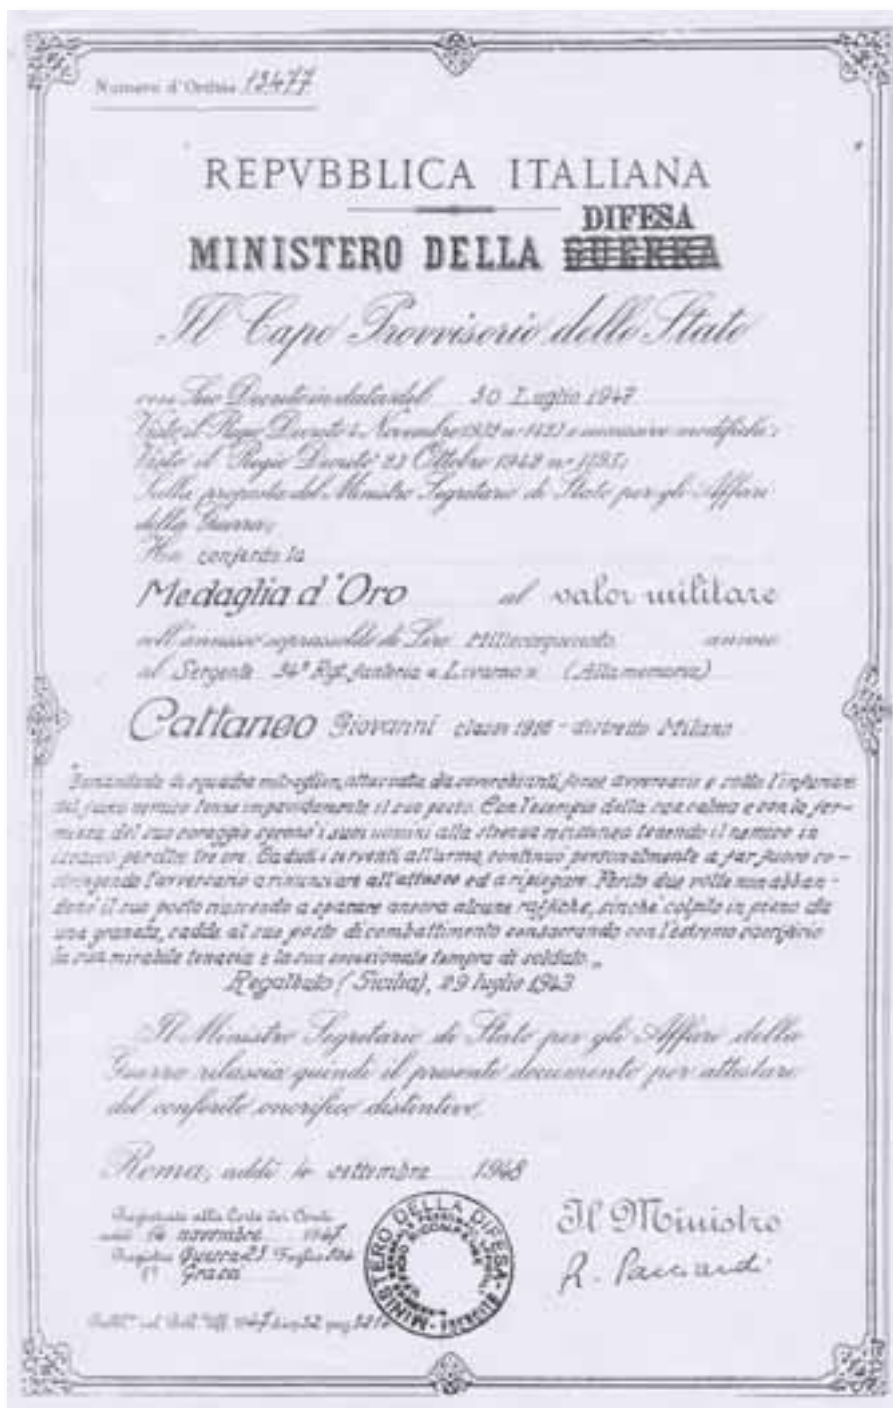 Numero d'Ordine 13477
REPVBBLICA ITALIANA
DIFESA
MINISTERO DELLA GUERRA
Il Capo Provvisorio dello Stato
con Suo Decreto in data del 30 Luglio 1947
Visto il Regio Decreto 4 Novembre 1932 n° 1423 e successive modifiche;
Visto il Regio Decreto 23 Ottobre 1942 n° 1195;
Sulla proposta del Ministro Segretario di Stato per gli Affari
della Guerra;
Ha conferito la
Medaglia d'Oro al valor militare
coll'annesso soprassoldo di Lire Millecinquecento annue
al Sergente 34° Rgt. fanteria « Livorno » (Alla memoria)
Cattaneo Giovanni classe 1916 - distretto Milano
"Comandante di squadra mitraglieri, attaccata da soverchianti forze avversarie e sotto l'infuriare
del fuoco nemico tenne impavidamente il suo posto. Con l'esempio della sua calma e con la fer-
mezza del suo coraggio spronò i suoi uomini alla strenua resistenza tenendo il nemico in
iscacco per oltre tre ore. Caduti i serventi all'arma, continuò personalmente a far fuoco co-
stringendo l'avversario a rinunciare all'attacco ed a ripiegare. Ferito due volte non abban-
donò il suo posto riuscendo a sparare ancora alcune raffiche, sinché colpito in pieno da
una granata, cadde al suo posto di combattimento consacrando con l'estremo sacrificio
la sua mirabile tenacia e la sua eccezionale tempra di soldato."
Regalbuto (Sicilia), 29 luglio 1943
Il Ministro Segretario di Stato per gli Affari della
Guerra rilascia quindi il presente documento per attestare
del conferito onorifico distintivo.
Roma, addì 10 settembre 1948
Registrato alla Corte dei Conti
addì 14 novembre 1947
Registro Guerra 23 Foglio
Graca
MINISTERO DELLA DIFESA - ESERCITO
Il Ministro
R. Pacciardi
Pubbl.° sul Boll. Uff. 1947 disp. 32 pag.